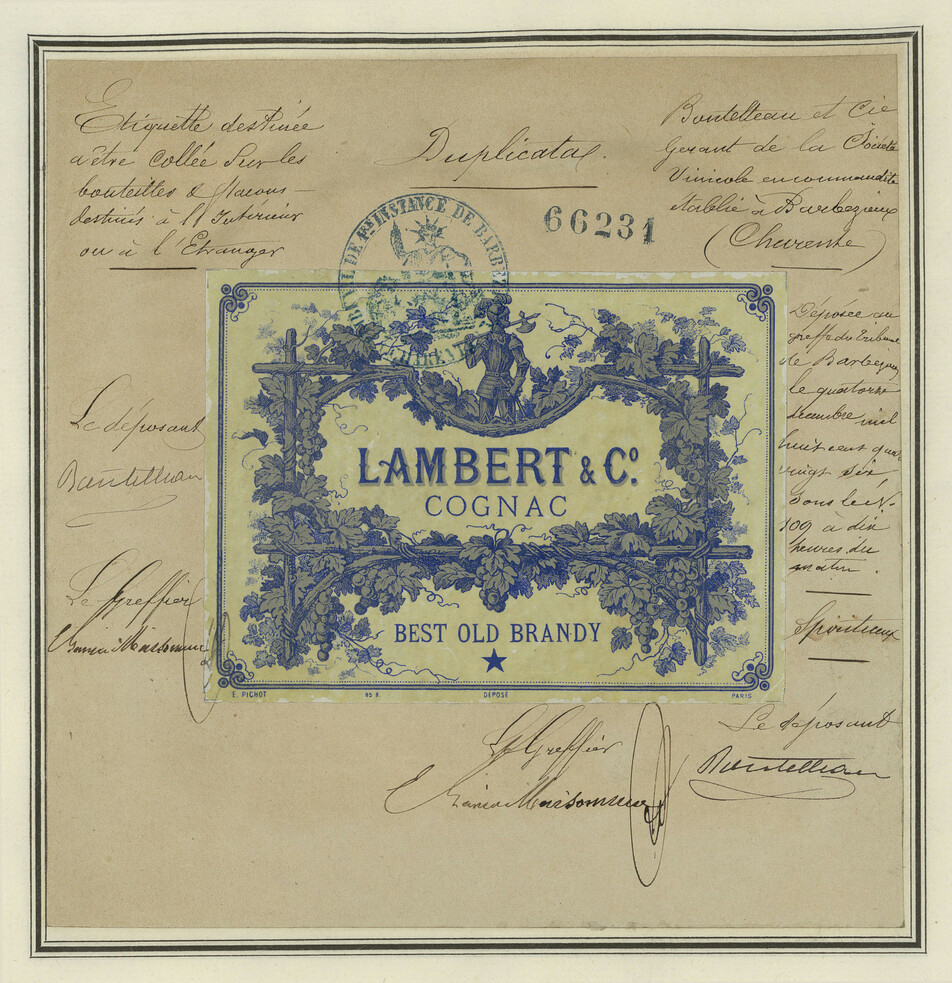 Etiquette destinée
a être collée Sur les
bouteilles & flacons
destinés à l'Intérieur
ou à l'Etranger
Duplicata.
Boutelleau et Cie
Gérant de la Société
Vinicole en commandite
établie à Barbezieux
(Charente)
66231
BUNAL DE 1re INSTANCE DE BARBEZ
CHARENTE
LAMBERT & Co.
COGNAC
BEST OLD BRANDY
E. PICHOT
DÉPOSÉ
PARIS
Déposée au
greffe du tribunal
de Barbezieux
le quatorze
décembre mil
huit cent quatre
vingt six
sous le N.
109 à dix
heures du
matin.
Spiritueux
Le déposant
Boutelleau
Le Greffier
Le Greffier
Le déposant
Boutelleau